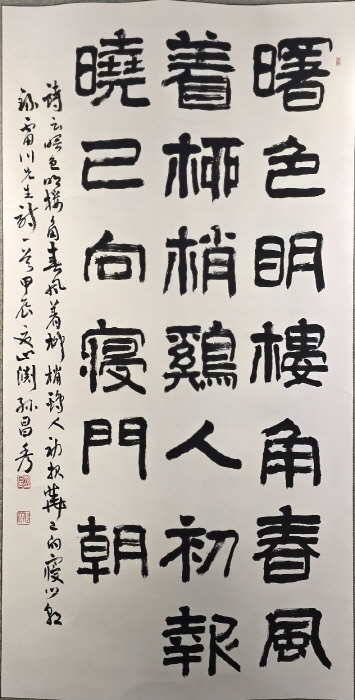 曙色眀樓角春風
着柳梢鷄人初報
曉已向寢門朝
詩云曙色明樓角春風着柳梢鷄人初報曉已向寢門朝
雷川先生詩一首甲辰夏孫昌秀